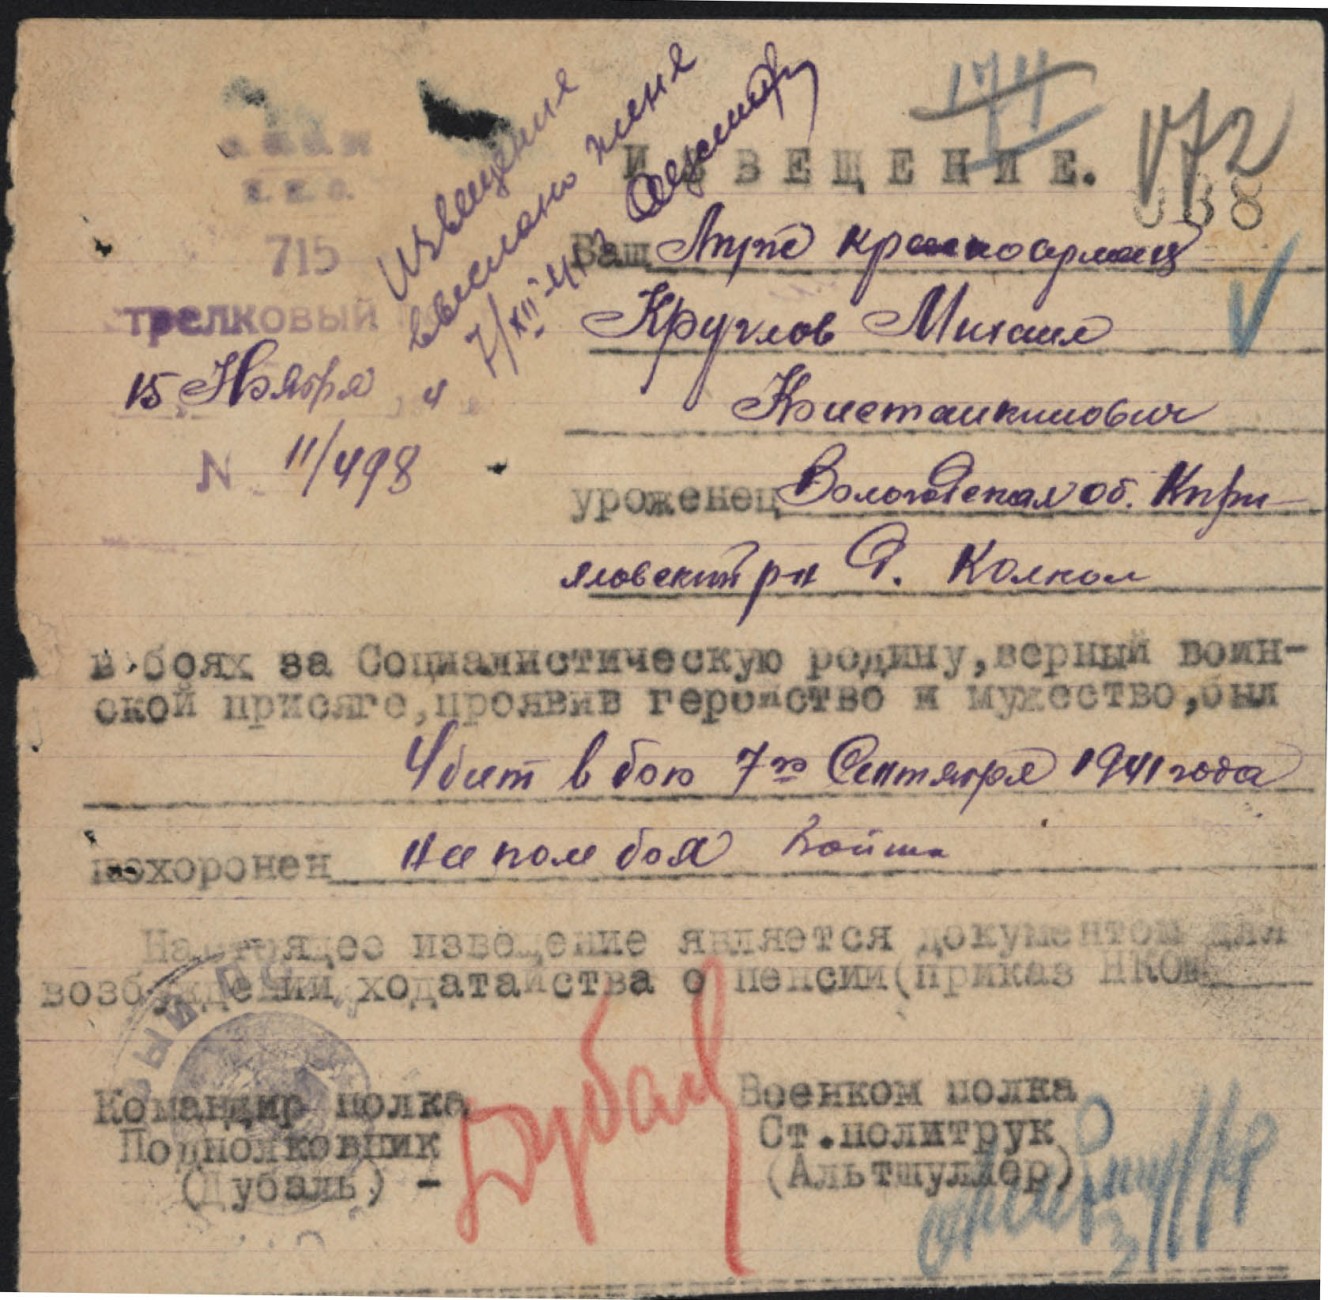 171
172
038
ИЗВЕЩЕНИЕ.
Извещение
выслано жене
7/XII-41 г.
Н. К. О.
715
стрелковый
15 Ноября
N 11/498
Ваш Муж красноармеец
Круглов Михаил
Констанкинович
уроженец Вологодская об. Кири
ловский рн д. Колкол
в боях за Социалистическую родину,верный воин-
ской присяге,проявив геройство и мужество,был
Убит в бою 7го Сентября 1941 года
похоронен На поле боя Войша
Настоящее извещение является документом для
возбуждении ходатайства о пенсии(приказ НКО№
Командир полка
Подполковник
(Дубаль) -
Дубаль
Военком полка
Ст.политрук
(Альтшуллер)